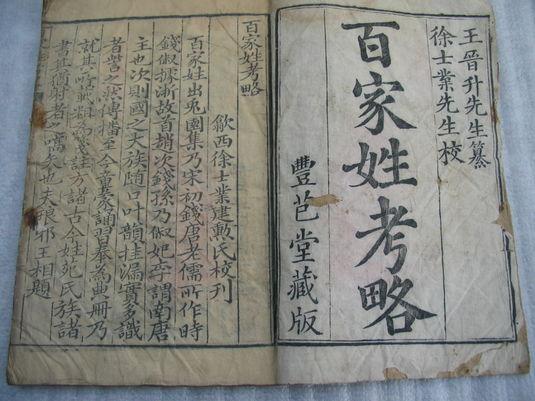 王晉升先生纂
徐士業先生校
百家姓考略
豐芑堂藏版
百家姓考略
歙西徐士業建勳氏校刊
百家姓出兎園集乃宋初錢唐老儒所作時
錢俶據浙故首趙次錢孫乃俶妃李謂南唐
主也次則國之大族隨口叶韻挂漏實多識
者訾之然傳播至今童蒙誦習奉為典冊乃
就其
方諸古今姓苑氏族諸
書其猶射者之嚆矢也夫琅邪王相題